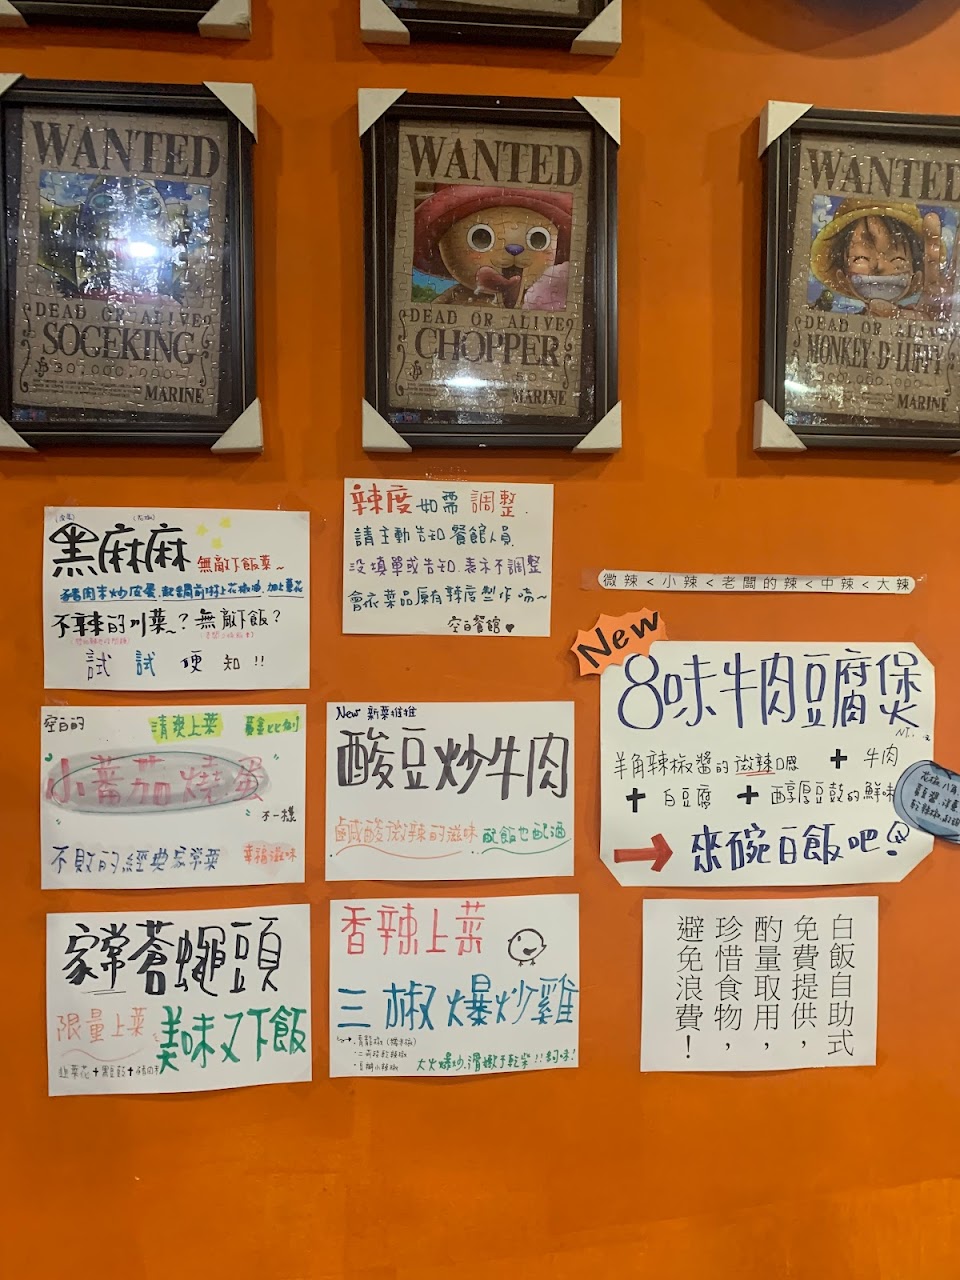 WANTED
DEAD OR ALIVE
SOGEKING
30,000,000
MARINE
WANTED
DEAD OR ALIVE
CHOPPER
50
MARINE
WANTED
DEAD OR ALIVE
MONKEY·D·LUFFY
MARINE
辣度如需調整
請主動告知餐館人員
沒填單或告知.表示不調整
會依菜品原有辣度製作唷~
空白餐館♥
(皮蛋) (花椒)
黑麻麻 無敵下飯菜~
豬肉末炒皮蛋,起鍋前淋上花椒油,加上蔥花
不辣的川菜~?無敵下飯?
試試便知!!
微辣<小辣<老闆的辣<中辣<大辣
New
8味牛肉豆腐煲
羊角辣椒醬的微辣 + 牛肉
+ 白豆腐 + 醇厚豆豉的鮮味
→ 來碗白飯吧!
空白的 清爽上菜
小蕃茄燒蛋
不一樣
不敗的經典家常菜 幸福滋味
New 新菜推推
酸豆炒牛肉
鹹酸微辣的滋味 配飯也配酒
家常蒼蠅頭
限量上菜 美味又下飯
韭菜花+黑豆豉+豬肉末
香辣上菜
三椒爆炒雞
大火爆炒.滑嫩不乾柴!!夠味!
白飯自助式
免費提供,
酌量取用,
珍惜食物,
避免浪費!